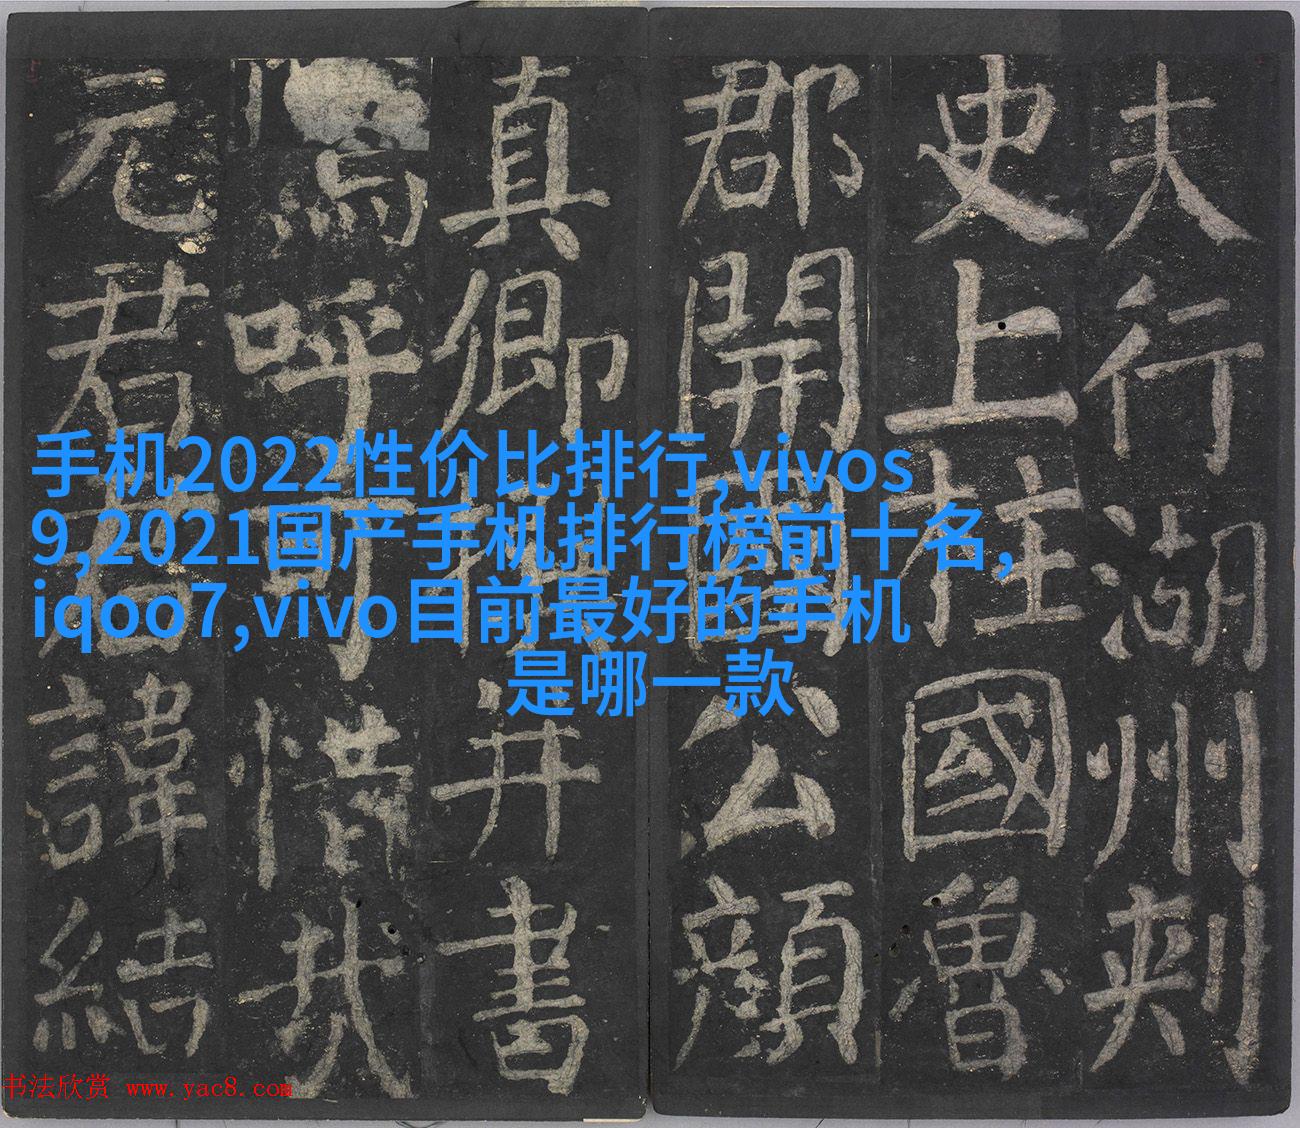 夫行湖州刺
史上柱國魯
郡開國公顔
真卿撰并書
嗚呼可惜哉
元君君諱結
手机2022性价比排行,vivos
9,2021国产手机排行榜前十名,
iqoo7,vivo目前最好的手机
是哪一款
书法欣赏 www.yac8.com